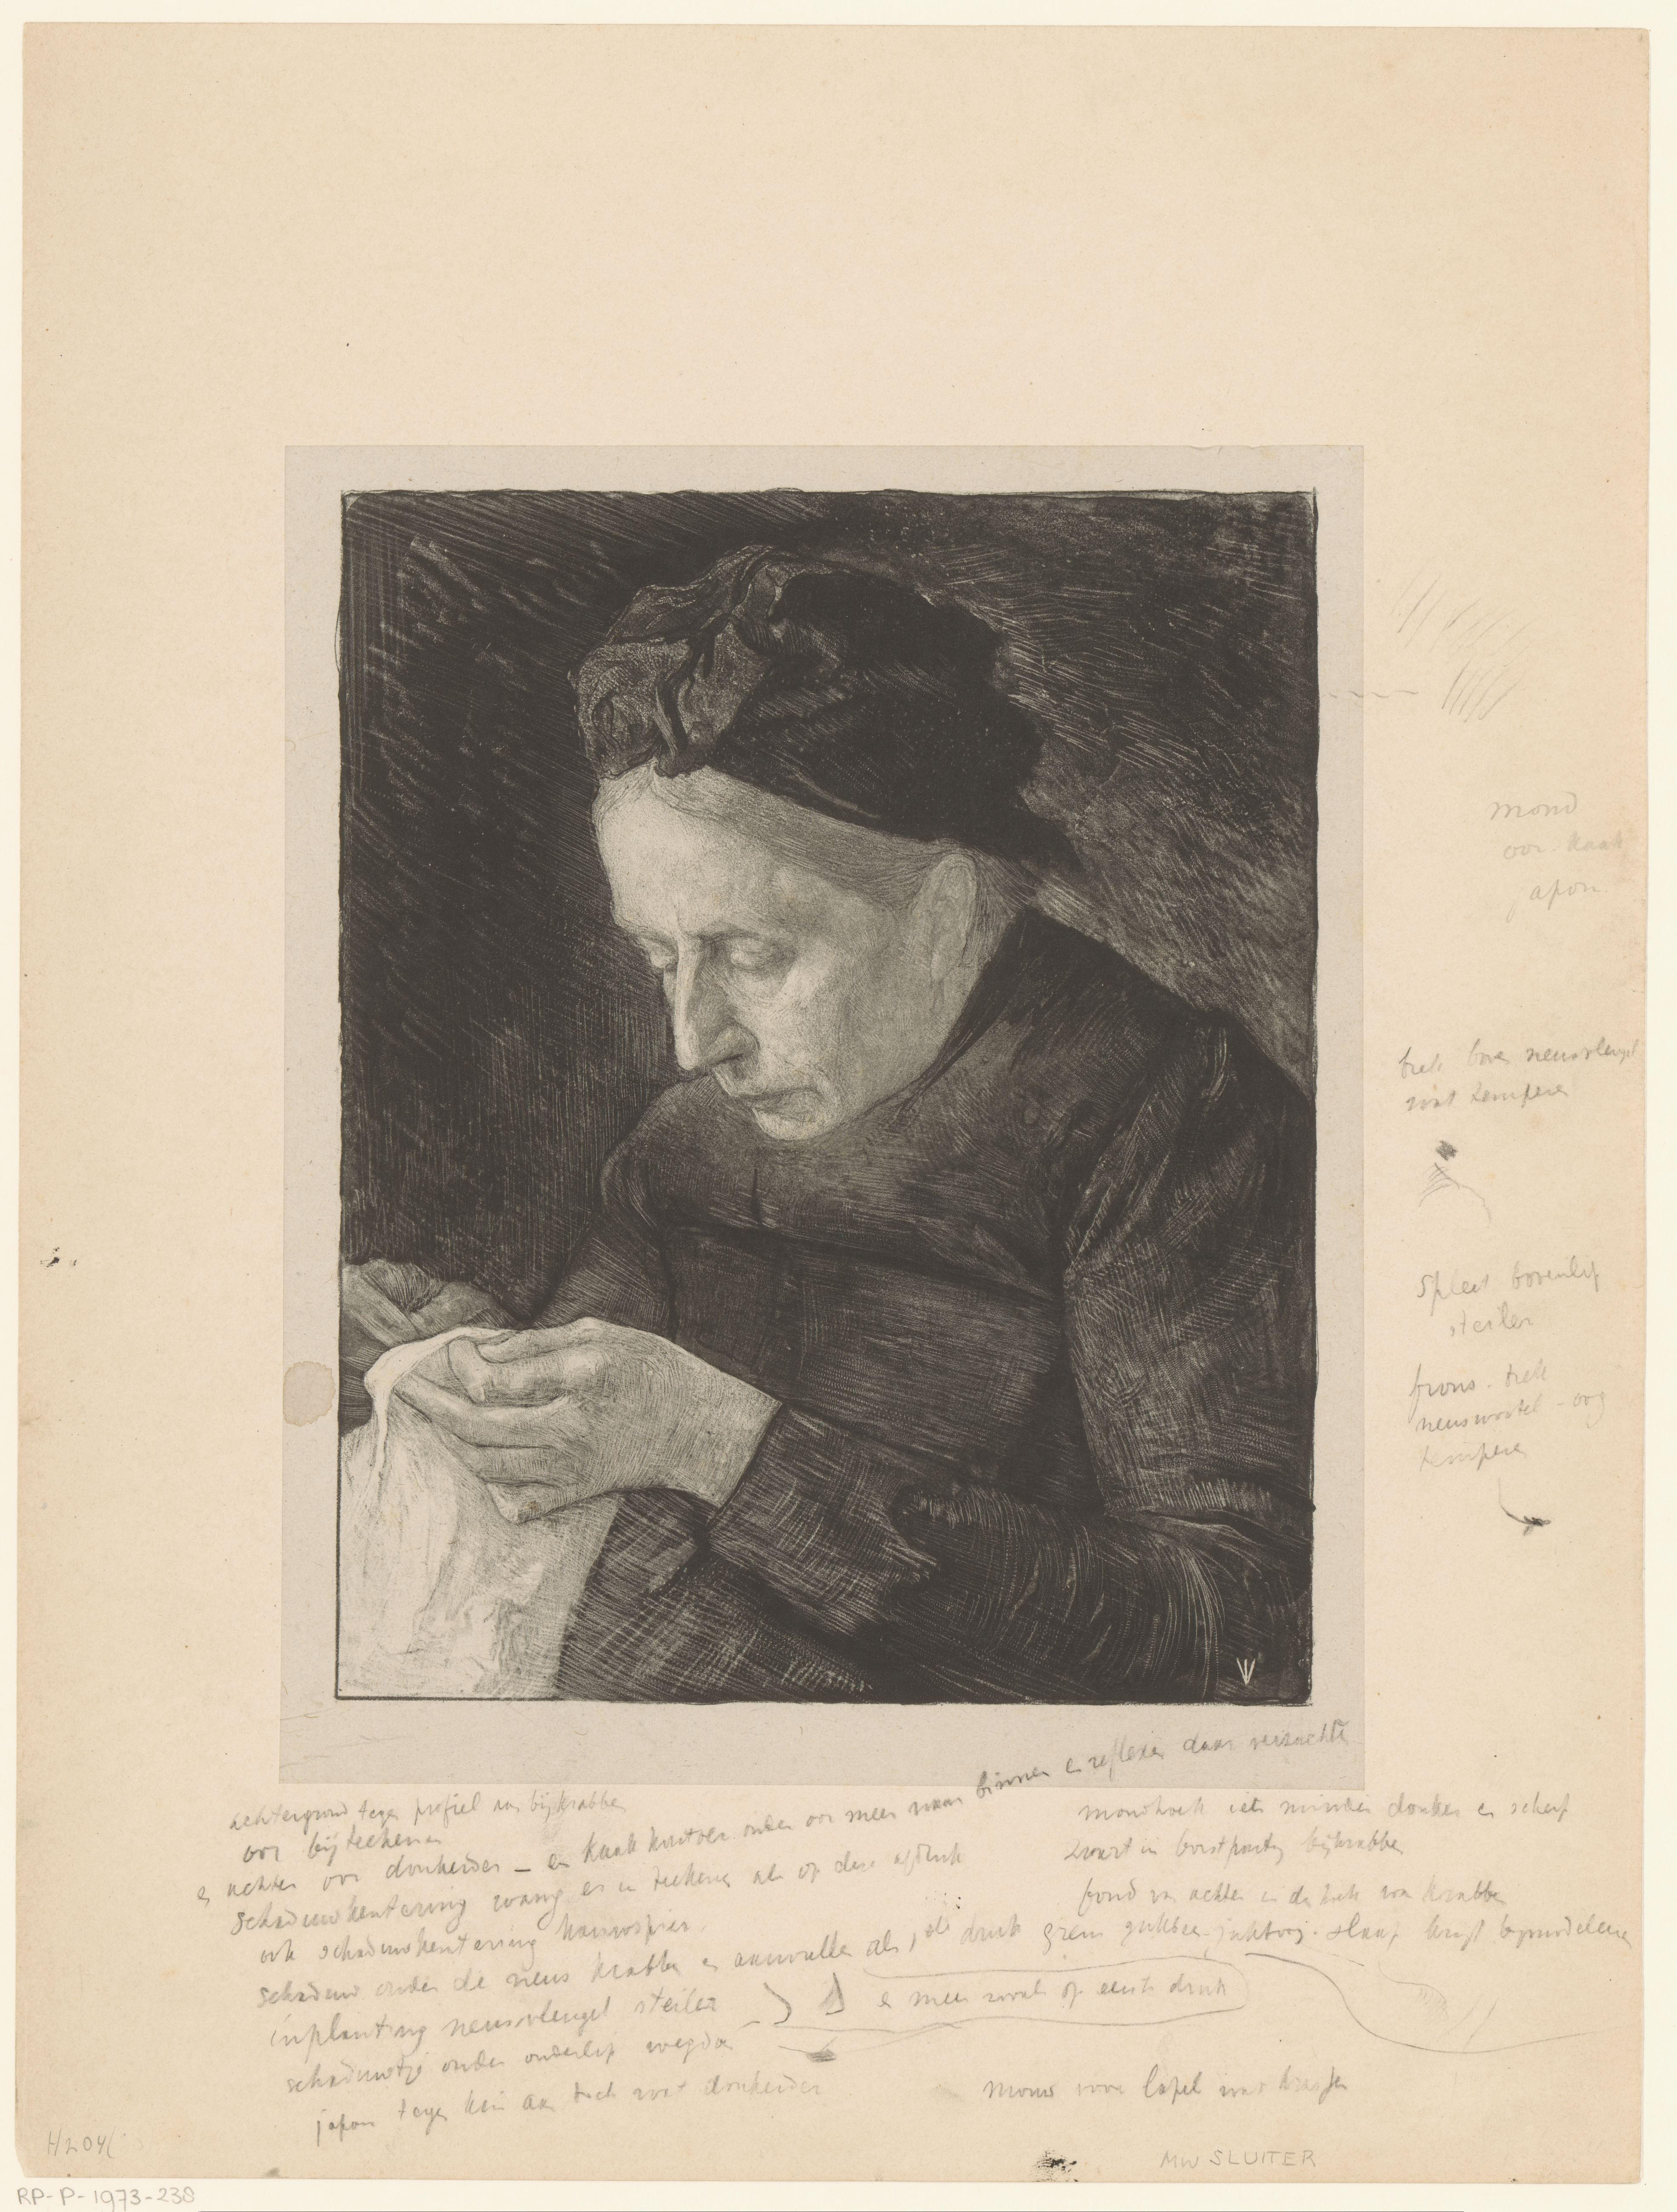 mond
oor. kaak
japon.
trek boven neusvleugel
wat temperen
spleet bovenlip
steiler
frons. trek
neuswortel - oog
temperen
binnen en reflexen daar verzachten
achtergrond tegen profiel aan bijkrabben
oor bijteekenen
en achter oor donkerder - en kaakkontoer onder oor meer naar
schaduwkentering wang er in teekenen als op deze afdruk
ook schaduwkentering kauwspier.
schaduw onder de neus krabben en aanvullen als 1ste druk
inplanting neusvleugel steiler
en meer zooals op eerste druk
schaduwtje onder onderlip wegdoen
japon tegen kin aan toch wat donkerder
mondhoek iets minder donker en scherp
zwart in borstpartij bijkrabben
fond van achter in de hoek van krabben
grens jukboog. slaap bijmodeleeren
mouw voor lapel wat
H204
MW SLUITER
RP-P-1973-238